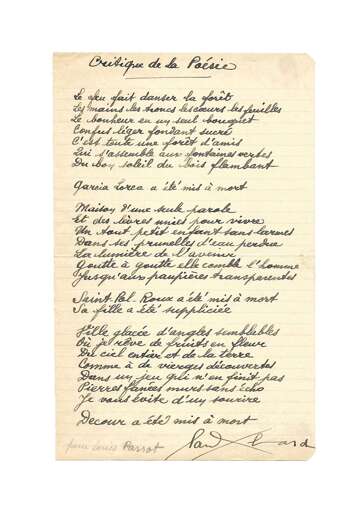 Critique de la Poésie
Le feu fait danser la forêt
Les mains les troncs les cœurs les feuilles
Le bonheur en un seul bouquet
Confus léger fondant sucré
C'est toute une forêt d'amis
Qui s'assemble aux fontaines vertes
Du bon soleil du bois flambant
Garcia Lorca a été mis à mort
Maison d'une seule parole
Et des lèvres unies pour vivre
Un tout petit enfant sans larmes
Dans ses prunelles d'eau perdue
La lumière de l'avenir
Goutte à goutte elle comble l'homme
Jusqu'aux paupières transparentes
Saint-Pol Roux a été mis à mort
Sa fille a été suppliciée
Ville glacée d'angles semblables
Où je rêve de fruits en fleur
Du ciel entier et de la terre
Comme à de vierges découvertes
Dans un jeu qui n'en finit pas
Pierres fanées murs sans écho
Je vous évite d'un sourire
Decour a été mis à mort
pour Louis Parrot
Paul Eluard